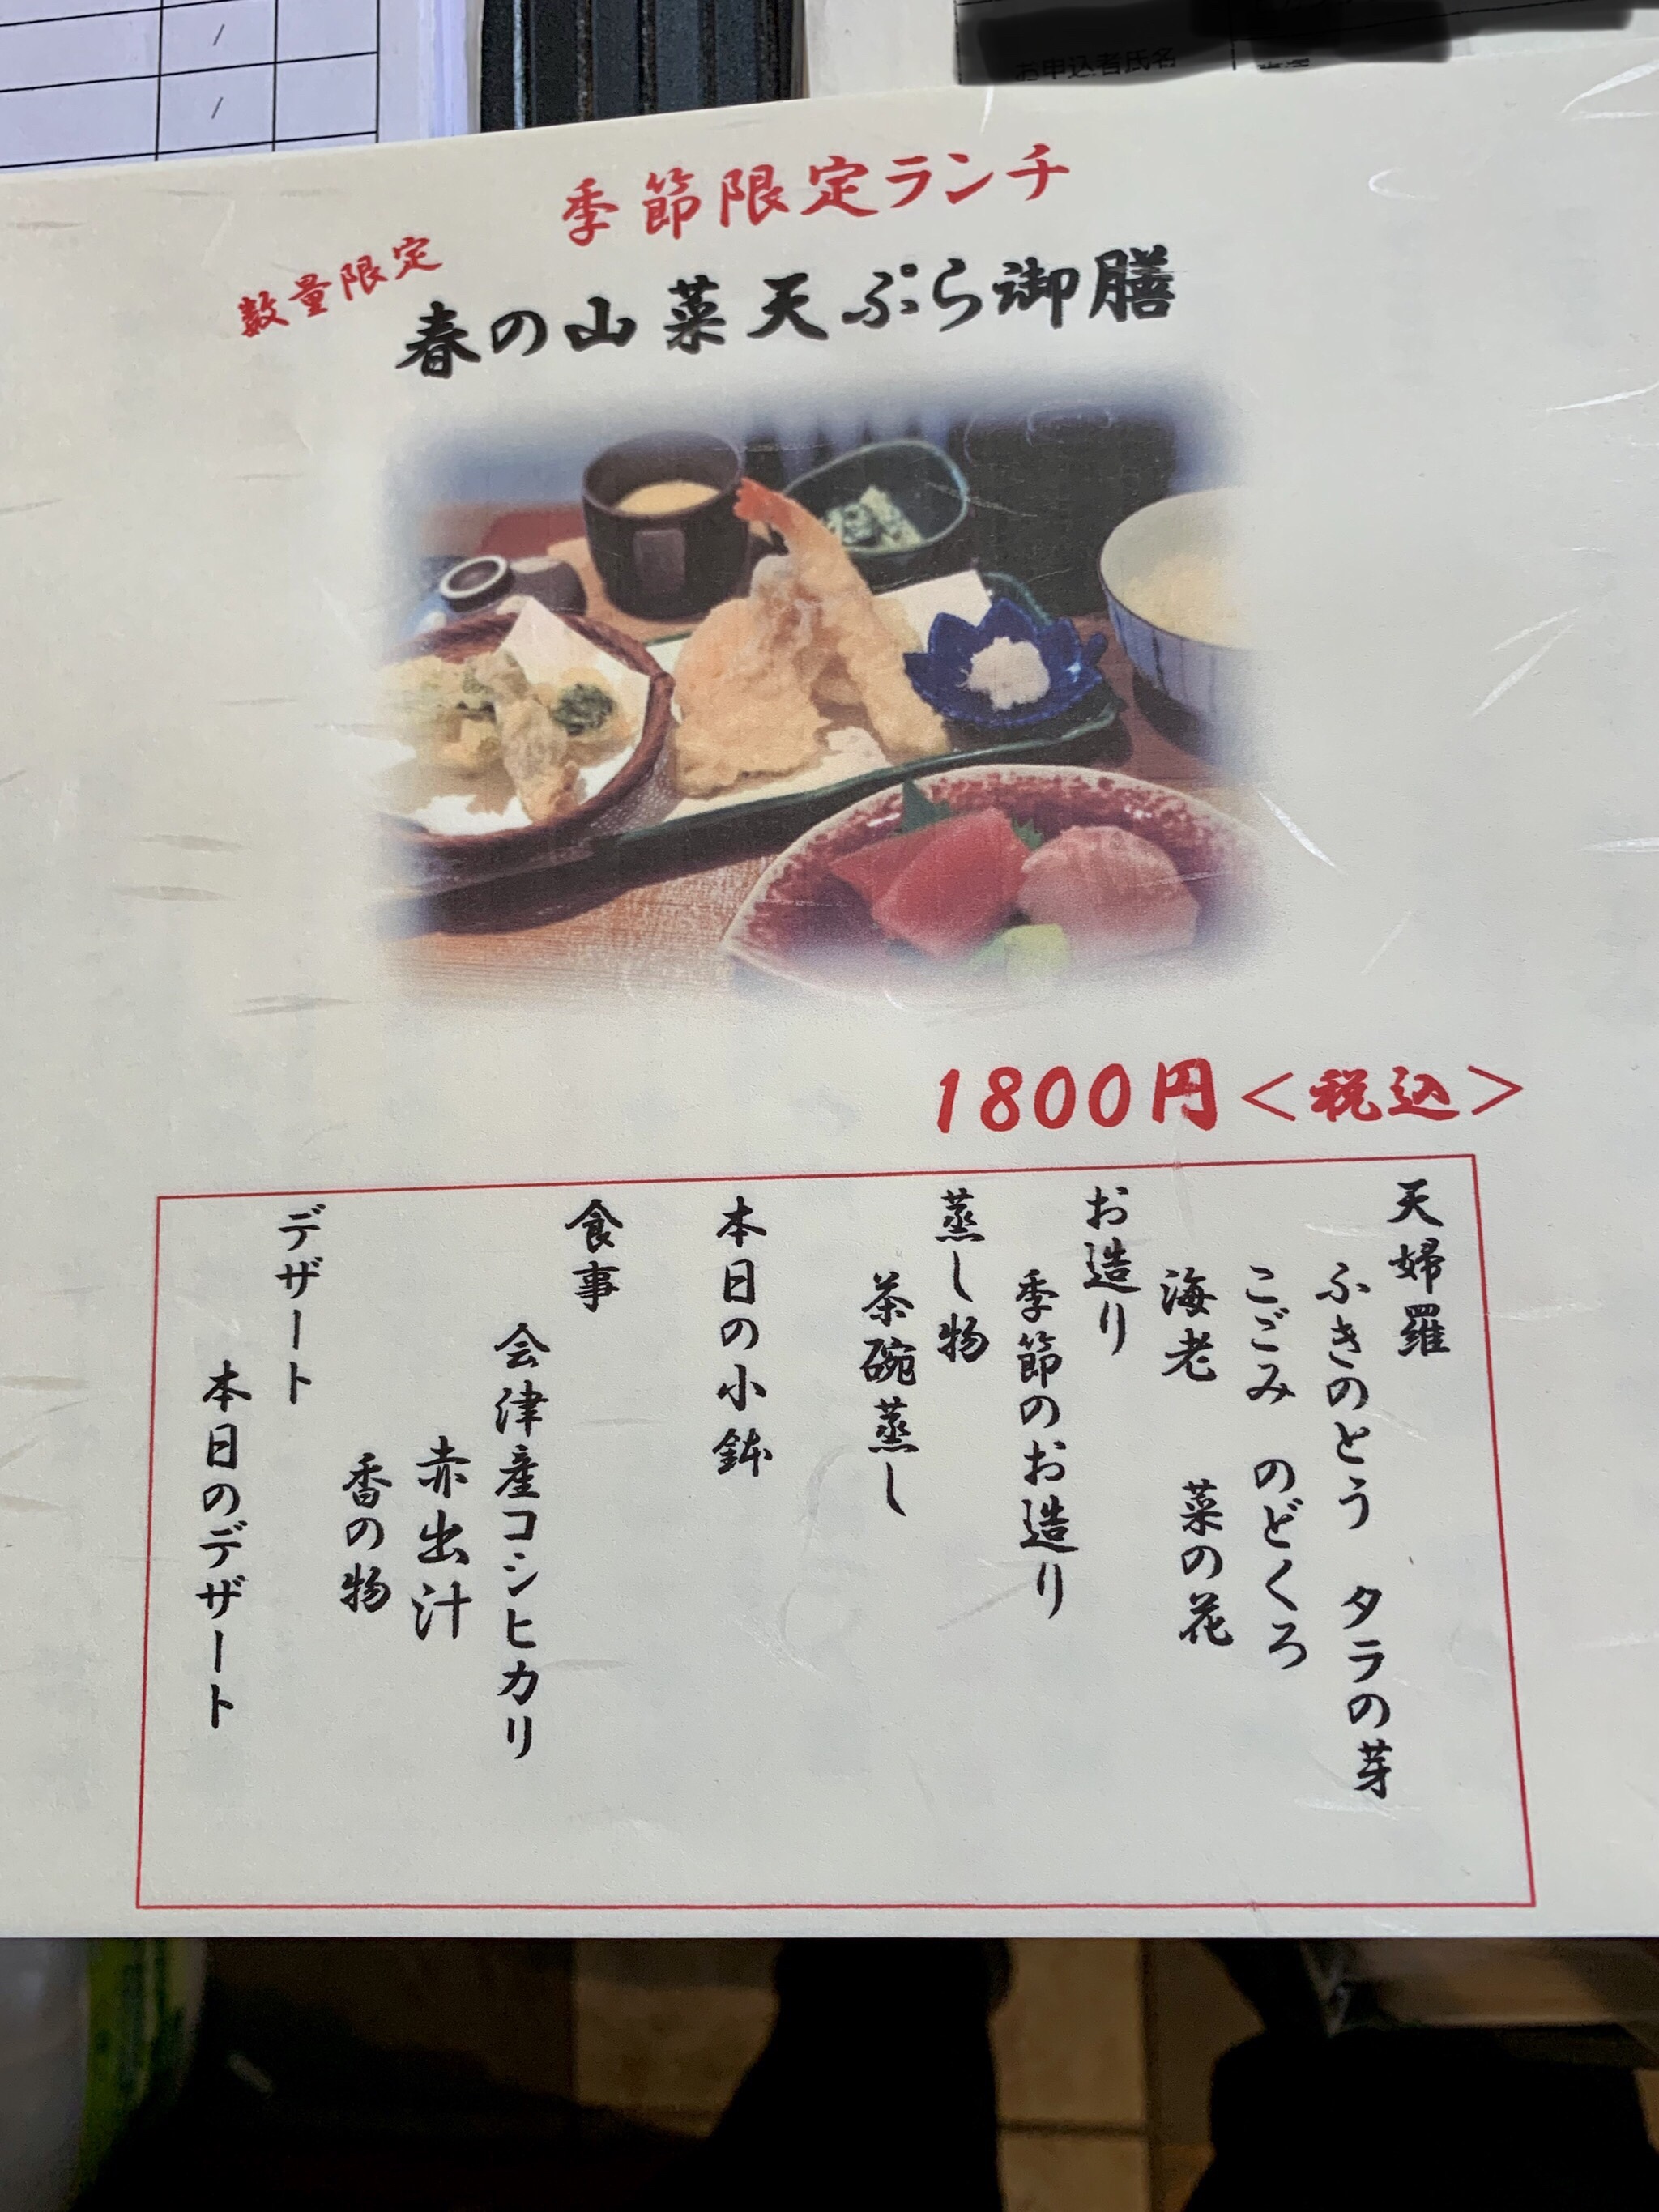 お申込者氏名
季節限定ランチ
数量限定
春の山菜天ぷら御膳
1800円＜税込＞
天婦羅
ふきのとう　タラの芽
こごみ　のどくろ
海老　菜の花
お造り
季節のお造り
蒸し物
茶碗蒸し
本日の小鉢
食事
会津産コシヒカリ
赤出汁
香の物
デザート
本日のデザート